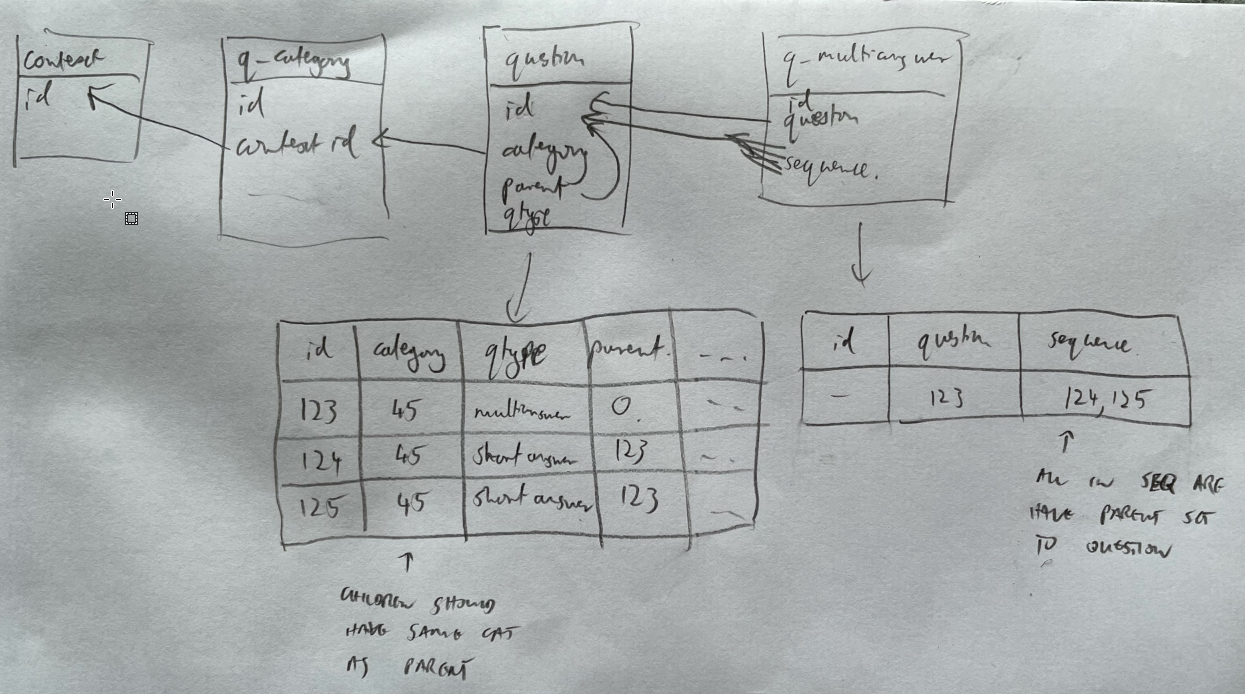 context
id
q-category
id
context id
question
id
category
parent
qtype
q-multianswer
id
question
sequence.
id category qtype parent. ---.
123 45 multianswer 0.
124 45 short answer 123
125 45 short answer 123
id question sequence.
- 123 124,125
CHILDREN SHOULD
HAVE SAME CAT
AS PARENT
ALL IN SEQ ARE
HAVE PARENT SET
TO QUESTION